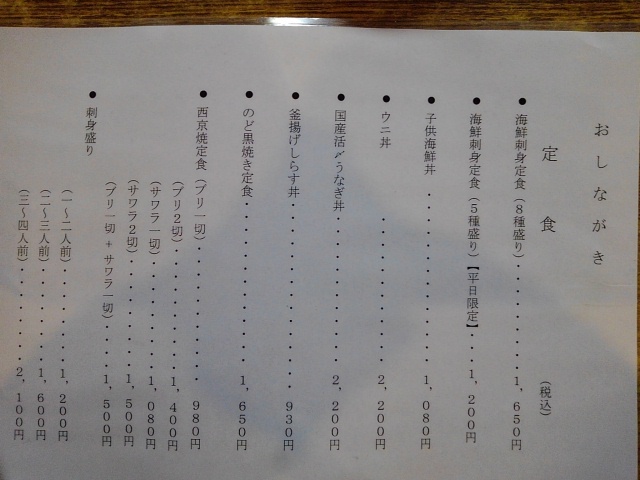 おしながき
定食
（税込）
●海鮮刺身定食（８種盛り）・・・・・・・・・１,６５０円
●海鮮刺身定食（５種盛り）【平日限定】・・・１,２００円
●子供海鮮丼・・・・・・・・・・・・・・・１,０８０円
●ウニ丼・・・・・・・・・・・・・・２,２００円
●国産活〆うなぎ丼・・・・・・・・・・・・・２,２００円
●釜揚げしらす丼・・・・・・・・・・・・・・・９３０円
●のど黒焼き定食・・・・・・・・・・・・・・１,６５０円
●西京焼定食（ブリ一切）・・・・・・・・・・・９８０円
（ブリ２切）・・・・・・・・・・１,４００円
（サワラ一切）・・・・・・・・・１,０８０円
（サワラ２切）・・・・・・・・・１,５００円
（ブリ一切＋サワラ一切）・・・・１,５００円
●刺身盛り
（一～二人前）・・・・・・・・・１,２００円
（二～三人前）・・・・・・・・・１,６００円
（三～四人前）・・・・・・・・・２,１００円